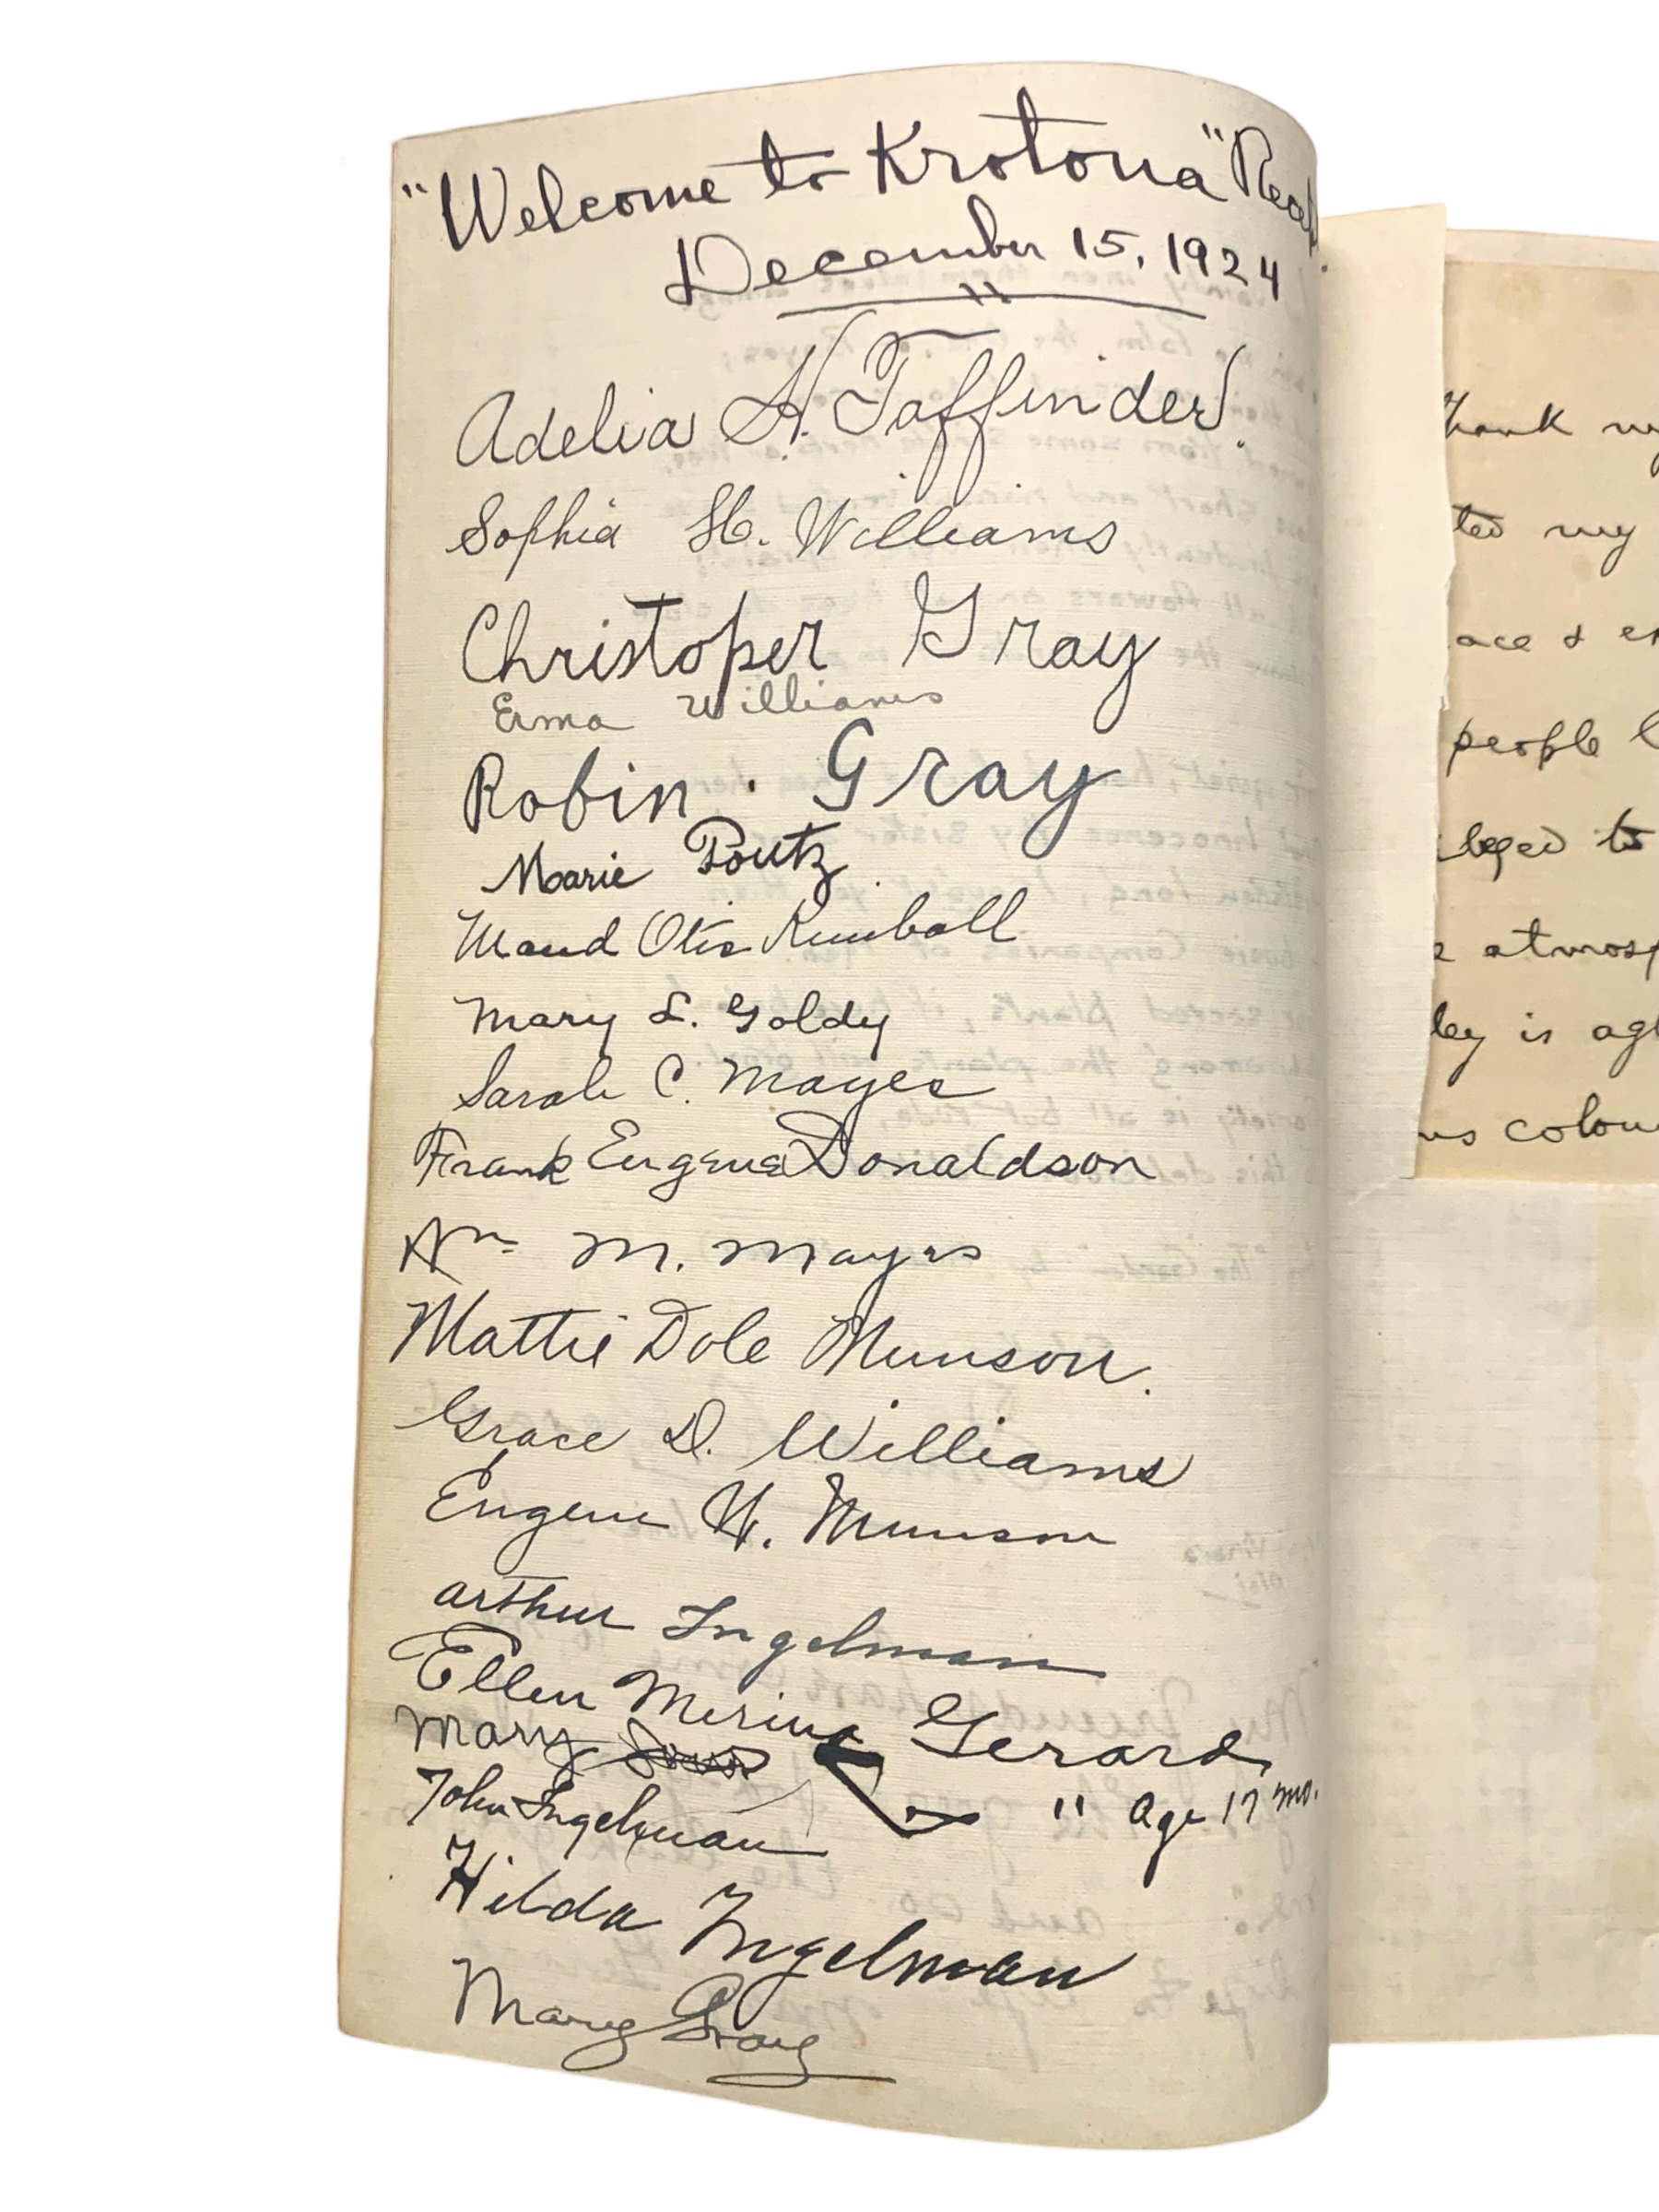 "Welcome to Krotona" Recep.
December 15, 1924
"
Adelia H. Taffinder.
Sophia H. Williams
Christoper Gray
Erma Williams
Robin. Gray
Marie Poutz
Maud Otis Kimball
Mary L. Goldy
Sarah C. Mayes
Frank Eugene Donaldson
Wm M. Mayes
Mattie Dole Munson.
Grace D. Williams
Eugene W. Munson
Arthur Ingelman
Ellen Merina Gerard
Mary
" Age 17 mo.
John Ingelman
Hilda Ingelman
Mary Gray
thank my
ted my
ace & en
people
leged to
atmosp
ley is agl
us colou